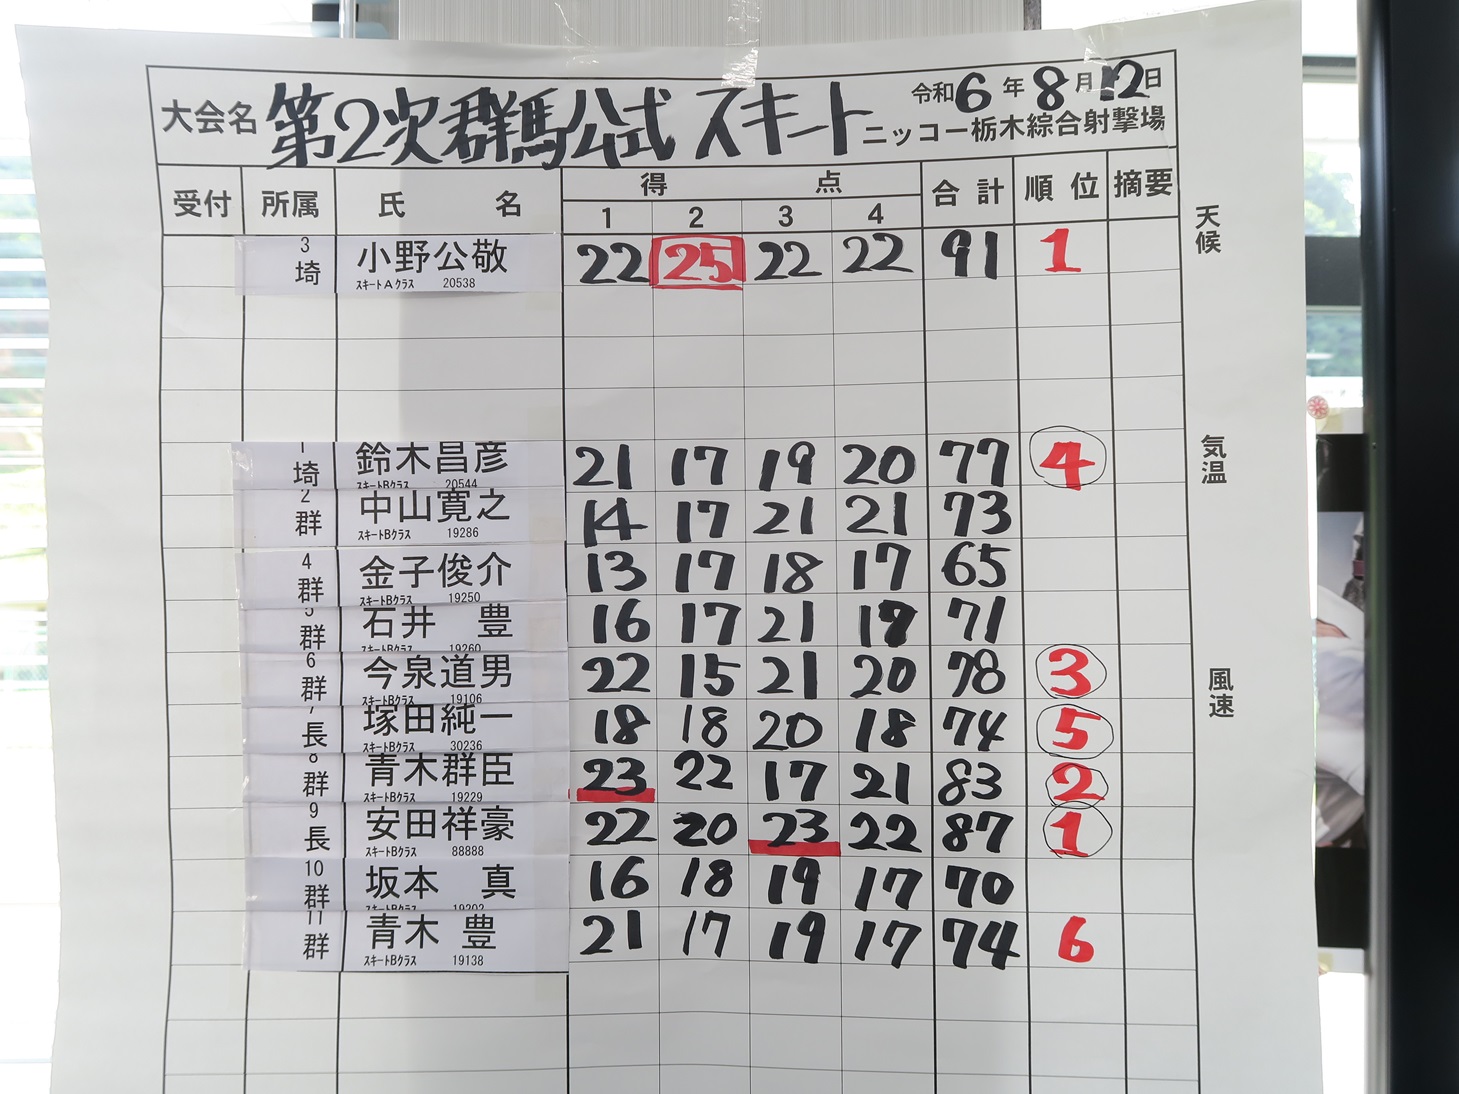 大会名 第2次群馬公式 スキート 令和6年8月12日
ニッコー栃木綜合射撃場
受付 所属 氏 名 得 点 合計 順位 摘要
1 2 3 4
天候
3 埼 小野公敬 22 25 22 22 91 1
スキートAクラス 20538
気温
1 埼 鈴木昌彦 21 17 19 20 77 4
スキートBクラス 20544
2 群 中山寛之 14 17 21 21 73
スキートBクラス 19286
4 群 金子俊介 13 17 18 17 65
スキートBクラス 19250
5 群 石井 豊 16 17 21 17 71
スキートBクラス 19260
風速
6 群 今泉道男 22 15 21 20 78 3
スキートBクラス 19106
7 長 塚田純一 18 18 20 18 74 5
スキートBクラス 30236
8 群 青木群臣 23 22 17 21 83 2
スキートBクラス 19229
9 長 安田祥豪 22 20 23 22 87 1
スキートBクラス 88888
10 群 坂本 真 16 18 19 17 70
スキートBクラス 19202
11 群 青木 豊 21 17 19 17 74 6
スキートBクラス 19138